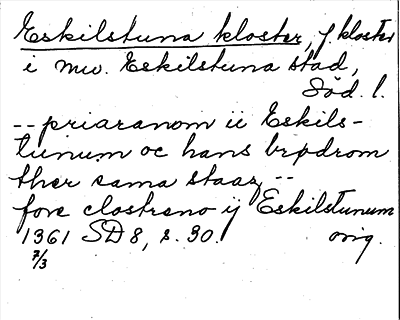 Eskilstuna kloster, f. kloster
i nuv. Eskilstuna stad,
Söd. l.
-- priaranom ii Eskils-
tunum oc hans brødrom
ther sama staaz --
fore clostreno ij Eskilstunum
1361 SD 8, s. 30. orig.
7/3